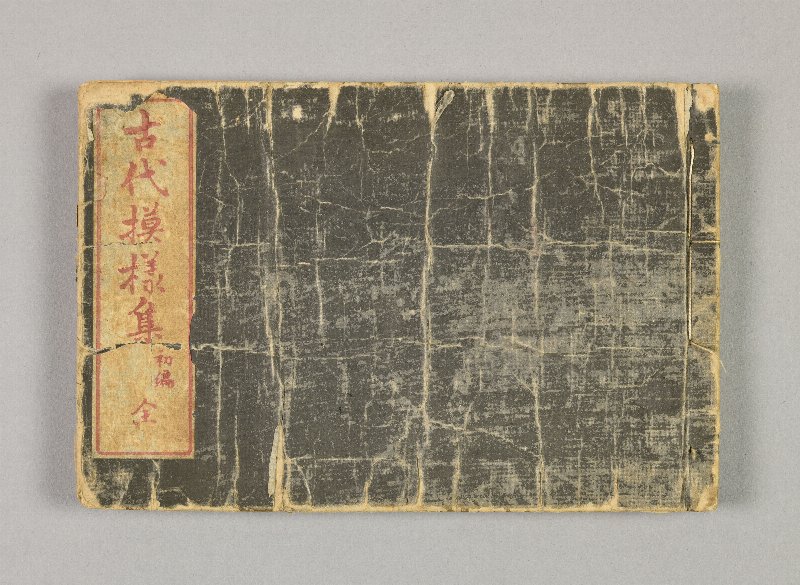 古代摸様集
初編
全